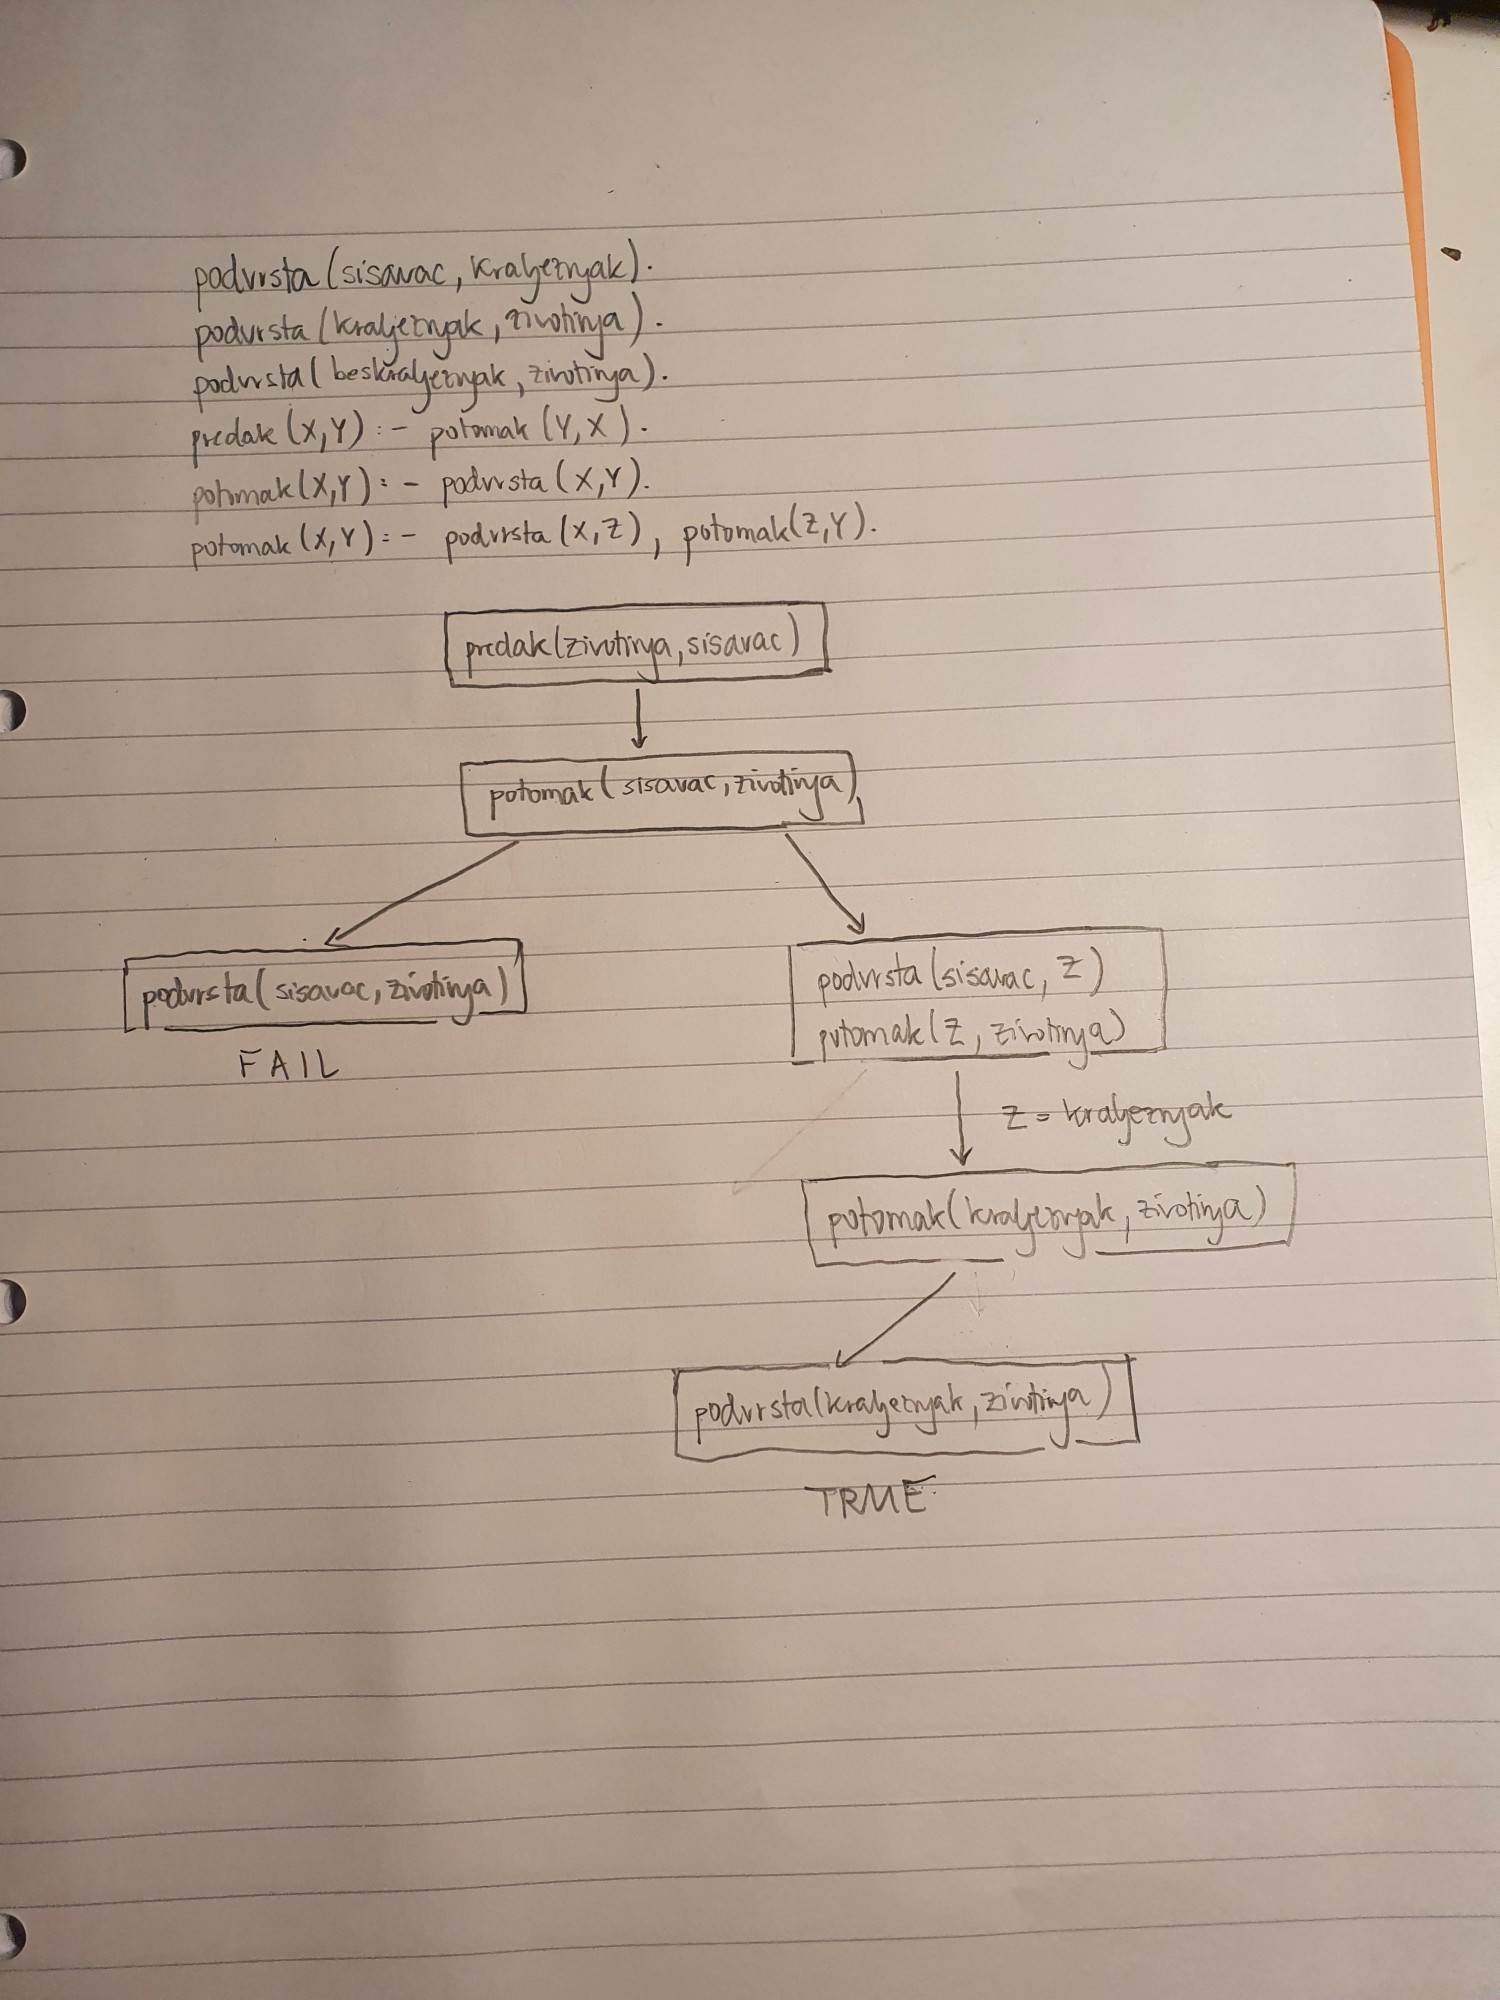 podvrsta(sisavac, kraljeznjak).
podvrsta(kraljeznjak, zivotinja).
podvrsta(beskraljeznjak, zivotinja).
predak(X,Y):- potomak(Y,X).
potomak(X,Y):- podvrsta(X,Y).
potomak(X,Y):- podvrsta(X,Z), potomak(Z,Y).
predak(zivotinja, sisavac)
potomak(sisavac, zivotinja)
podvrsta(sisavac, zivotinja)
FAIL
podvrsta(sisavac, Z)
potomak(Z, zivotinja)
Z = kraljeznjak
potomak(kraljeznjak, zivotinja)
podvrsta(kraljeznjak, zivotinja)
TRUE